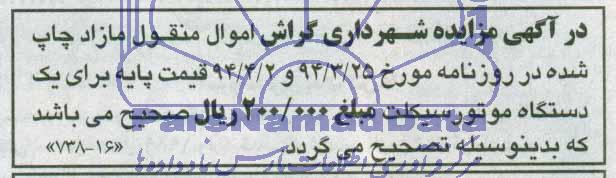 در آگهی مزایده شهرداری گراش اموال منقول مازاد چاپ
شده در روزنامه مورخ ۹۴/۳/۲۵ و ۹۴/۴/۲ قیمت پایه برای یک
دستگاه موتورسیکلت مبلغ ۲۰۰/۰۰۰ ریال صحیح می باشد
که بدینوسیله تصحیح می گردد. «۱۶-۷۳۸»
AriaNamadData
مرکز فرآوری اطلاعات پارس نماد داده‌ها